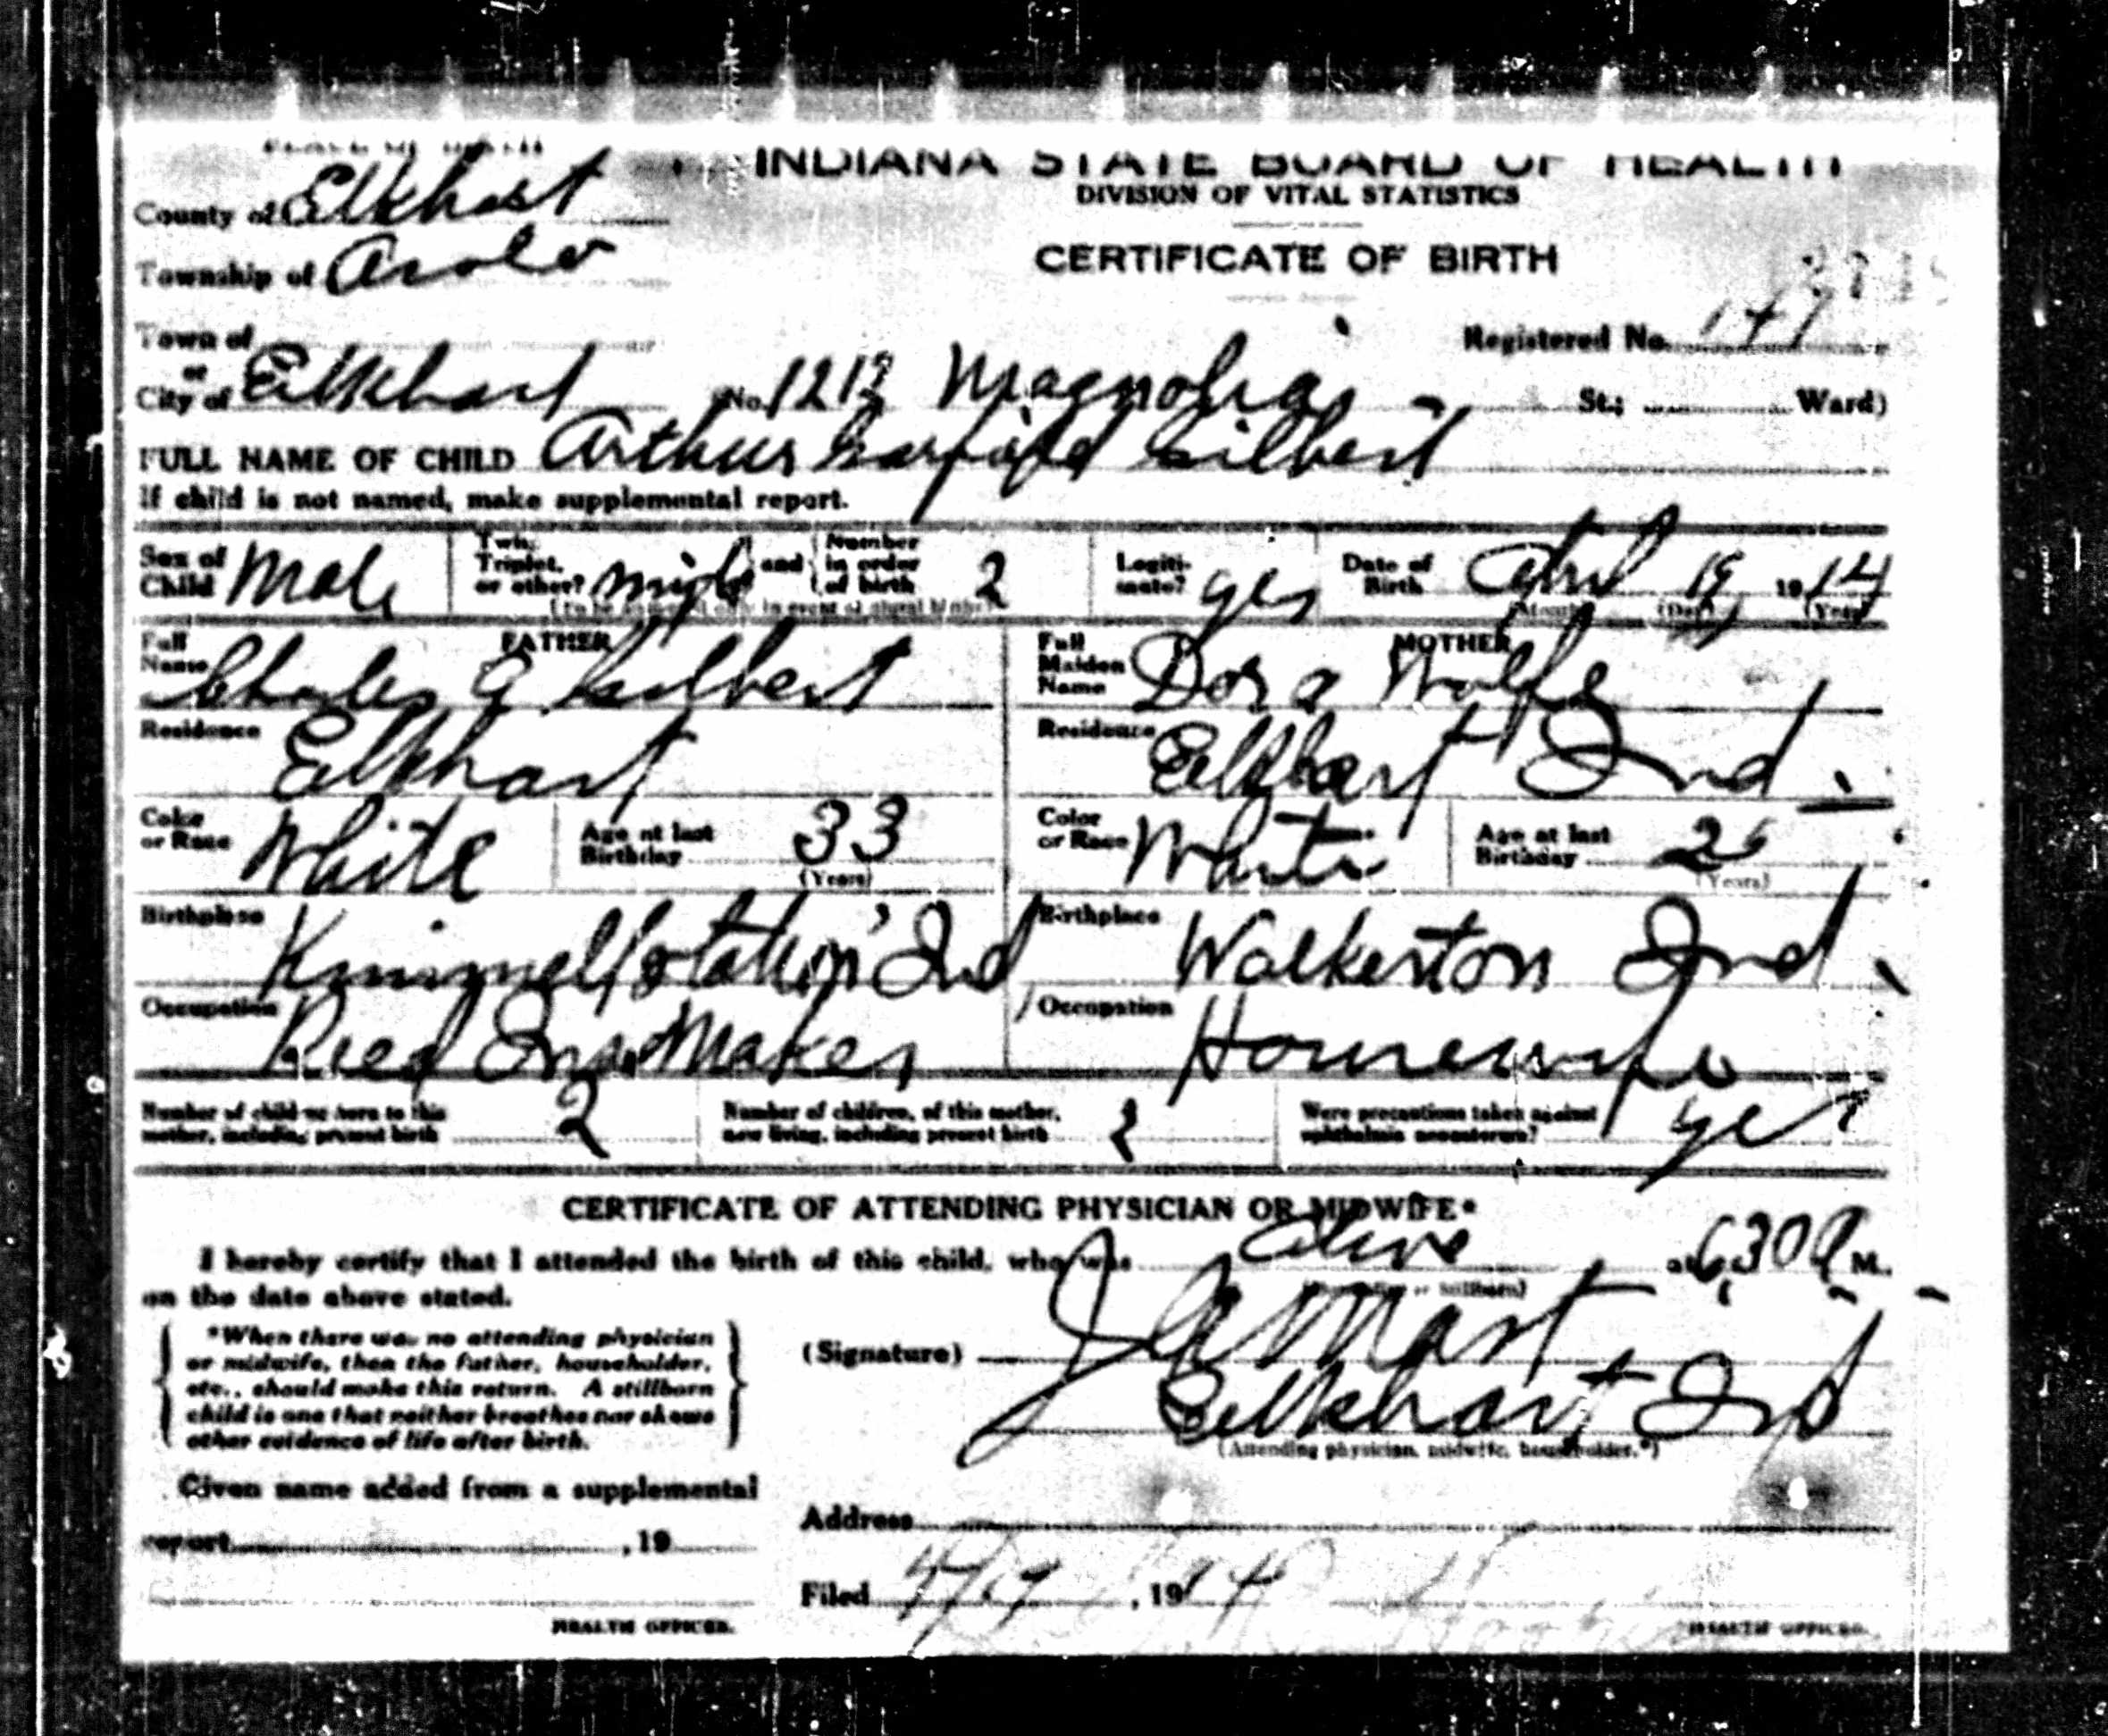 PLACE OF BIRTH
INDIANA STATE BOARD OF HEALTH
DIVISION OF VITAL STATISTICS
CERTIFICATE OF BIRTH
County of Elkhart
Township of
Registered No.
Town of
or
City of Elkhart No. 1213 Magnolia St.; Ward)
FULL NAME OF CHILD Arthur Garfield Gilbert
If child is not named, make supplemental report.
Sex of Child Male Twin, Triplet, or other? and Number in order of birth 2 Legitimate? yes Date of Birth April 19, 1914
(To be answered only in event of plural births) (Month) (Day) (Year)
FATHER MOTHER
Full Name Charles G Gilbert Full Maiden Name Dora Wolfe
Residence Elkhart Residence Elkhart Ind.
Color or Race White Age at last Birthday 33 (Years) Color or Race White Age at last Birthday (Years)
Birthplace Kimmell Station Ind Birthplace Walkerton Ind.
Occupation Reed Ins. Maker Occupation Housewife
Number of children born to this mother, including present birth 2 Number of children, of this mother, now living, including present birth 2 Were precautions taken against ophthalmia neonatorum? yes
CERTIFICATE OF ATTENDING PHYSICIAN OR MIDWIFE*
I hereby certify that I attended the birth of this child, who was Alive at 6,30 A M.
on the date above stated. (Born alive or stillborn)
*When there was no attending physician
or midwife, then the father, householder,
etc., should make this return. A stillborn
child is one that neither breathes nor shows
other evidence of life after birth.
(Signature) J A Mast
Elkhart, Ind
(Attending physician, midwife, householder.*)
Given name added from a supplemental
report , 19
Address
Filed , 1914
HEALTH OFFICER. HEALTH OFFICER.